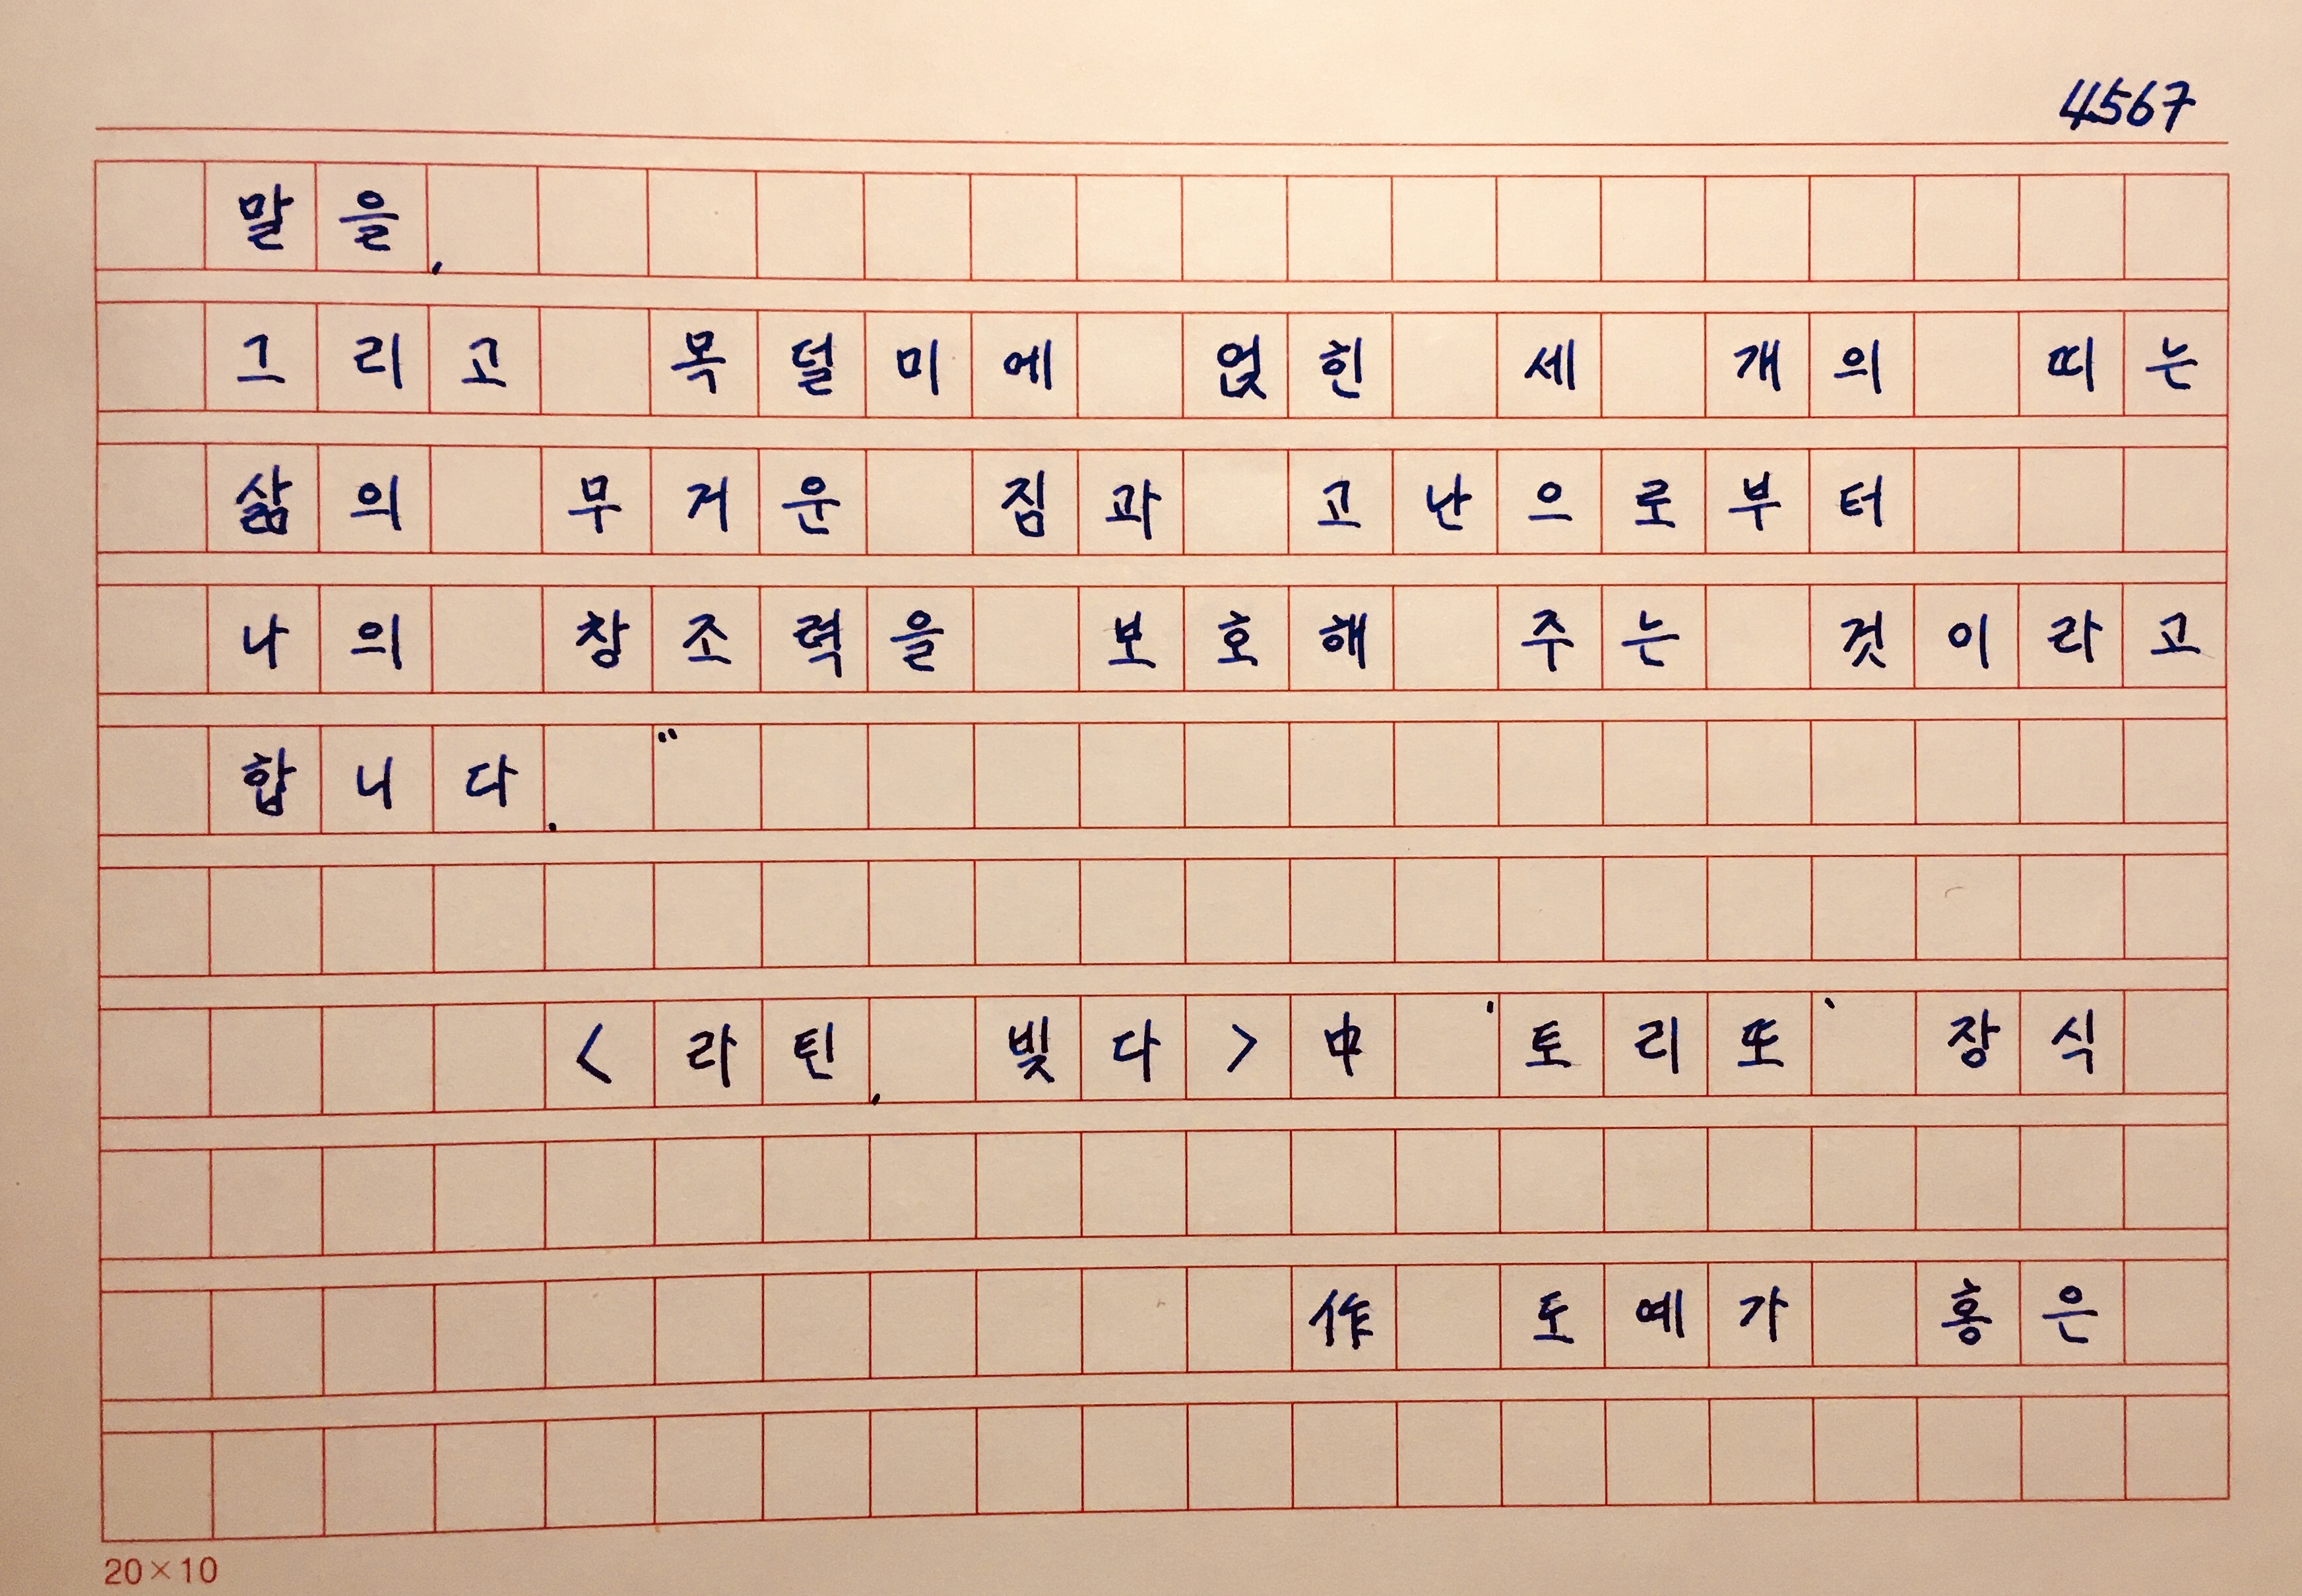 4567
말을,
그리고 목덜미에 얹힌 세 개의 띠는
삶의 무거운 짐과 고난으로부터
나의 창조력을 보호해 주는 것이라고
합니다."
<라틴, 빛다>中 '토리또' 장식
作 도예가 홍은
20×10